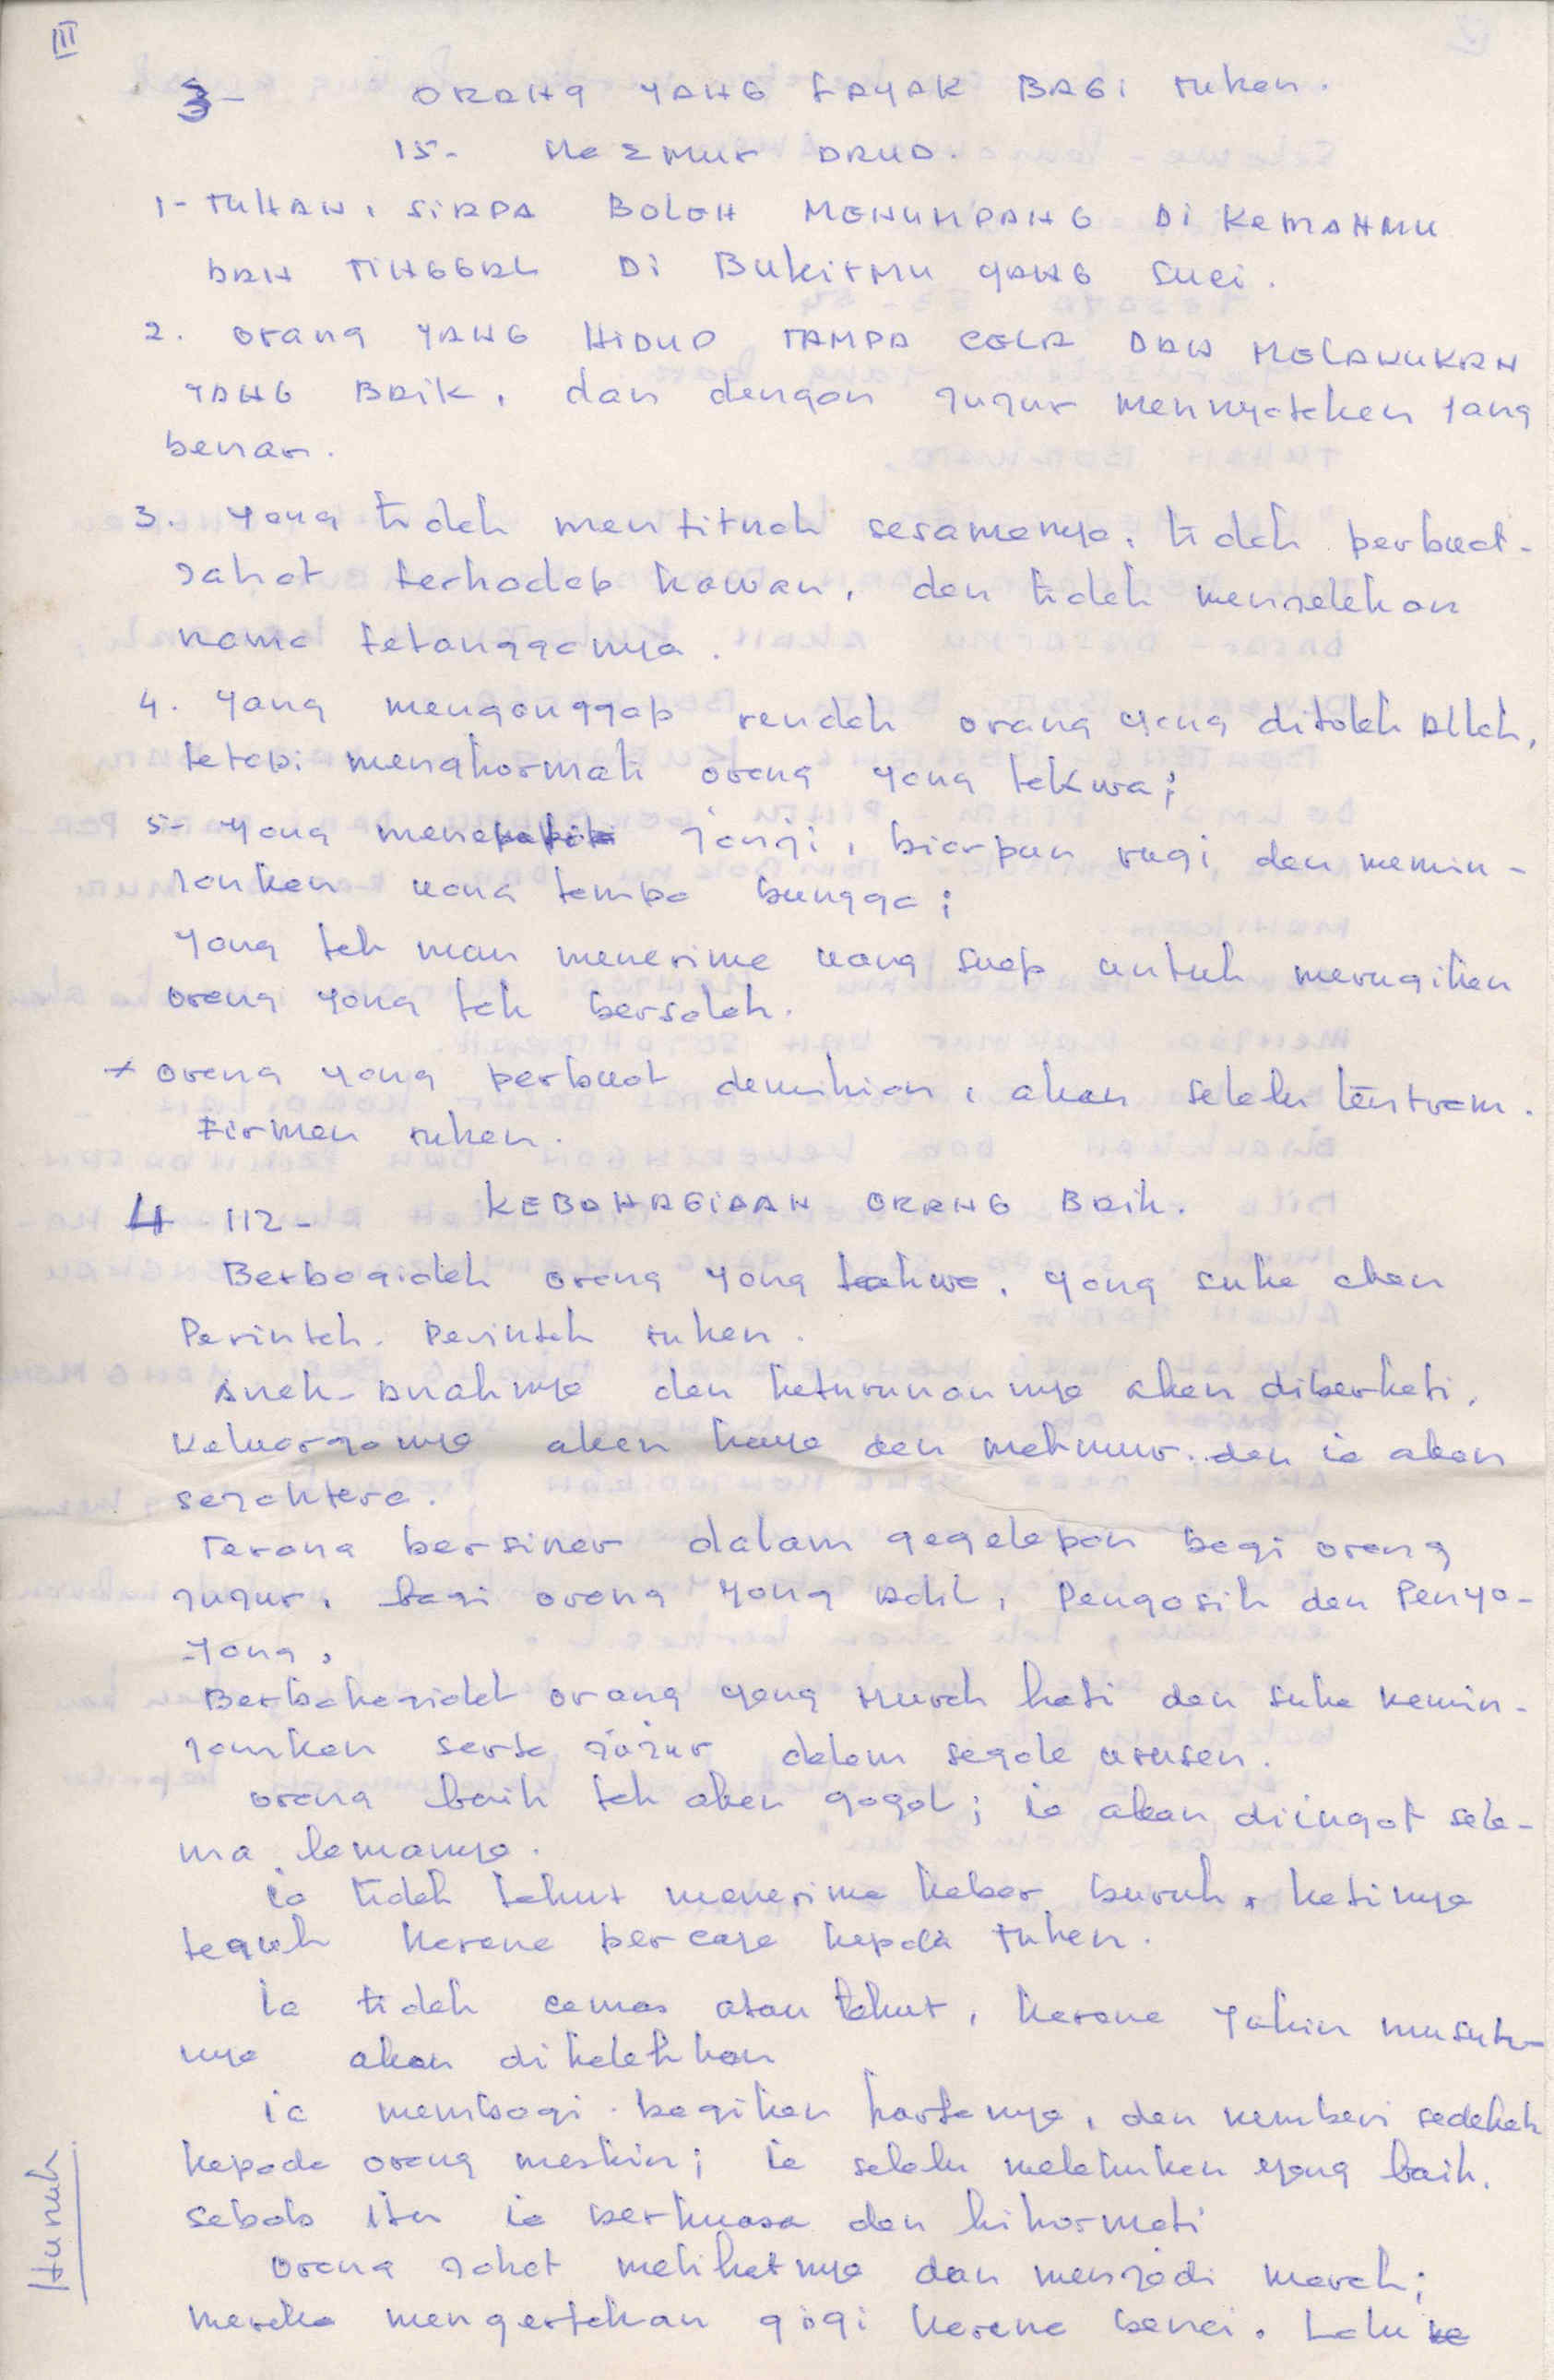 III
3- ORANG YANG LAYAK BAGI Tuhan.
15- Mazmur DAUD.
1- TUHAN, SIAPA BOLEH MENUMPANG DI KEMAHMU
DAN TINGGAL DI BUKITMU YANG Suci.
2. Orang YANG HIDUP TAMPA CELA DAN MELAKUKAN
YANG BAIK, dan dengan jujur mennyatakan yang
benar.
3. Yang tidak menfitnah sesamanya, tidak berbuat-
jahat terhadap kawan, dan tidak menjelekan
nama tetangganya.
4. Yang menganggap rendah orang yang ditolak Allah,
tetapi menghormati orang yang takwa;
5- Yang menepati janji, biarpun rugi, dan memin-
jankan uang tampa bungga;
Yang tak mau menerima uang suap untuk merugikan
orang yang tak bersalah.
+ Orang yang berbuat demikian, akan selalu tentram.
Firman Tuhan.
4 112- KEBAHAGIAAN ORANG Baik.
Berbagialah orang yang takwa, yang suka akan
Perintah. Perintah Tuhan.
Anak-anaknya dan keturunannya akan diberkati,
Keluarganya akan kaya dan makmur. dan ia akan
sejahtera.
Terang bersinar dalam gegelapan bagi orang
jujur, bagi orang yang adil, Pengasih dan Penya-
-yang,
Berbahagialah orang yang murah hati dan suka memin-
jamkan serta jujur dalam segala urusan.
Orang baik tak akan gagal; ia akan diingat sela-
ma lamanya.
ia tidak takut menerima kabar buruk, hatinya
teguh karena percaya kepada Tuhan.
ia tidak cemas atau takut, karena yakin musuh-
nya akan dikalahkan
ia membagi-bagikan hartanya, dan memberi sedekah
kepada orang meskin; ia selalu melakukan yang baik.
sebab itu ia berkuasa dan hihormati
Orang jahat melihatnya dan menjadi marah;
mereka mengertakan gigi karena benci. Lalu